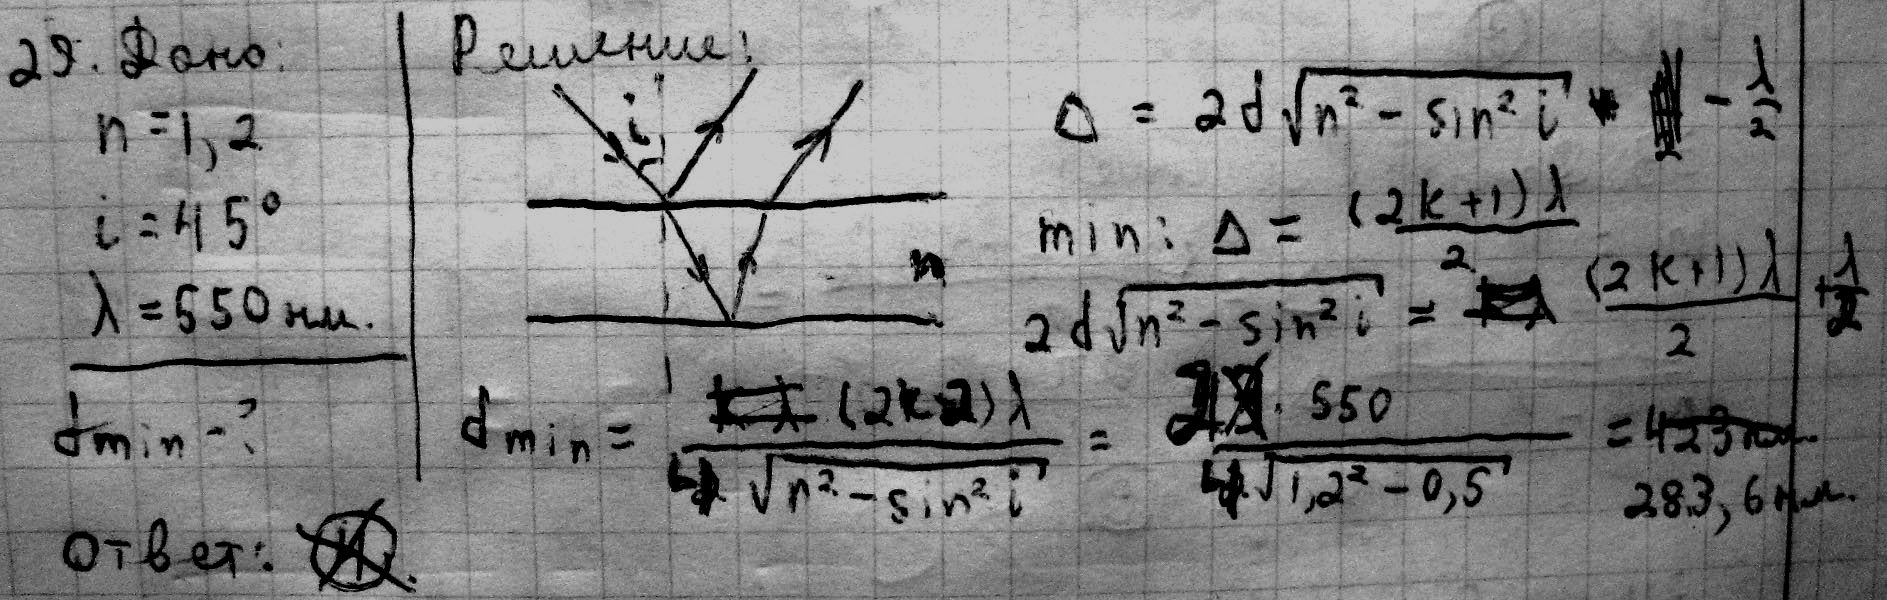 29. Дано:
n = 1,2
i = 45°
λ = 550 нм.
dmin - ?
Ответ:
Решение:
i
n
Δ = 2d√(n² - sin² i) - λ/2
min: Δ = (2k+1)λ/2
2d√(n² - sin² i) = (2k+1)λ/2 + λ/2
dmin = (2k+2)λ / 4√(n² - sin² i) = 2 · 550 / 4√(1,2² - 0,5) = 423 нм.
283,6 нм.